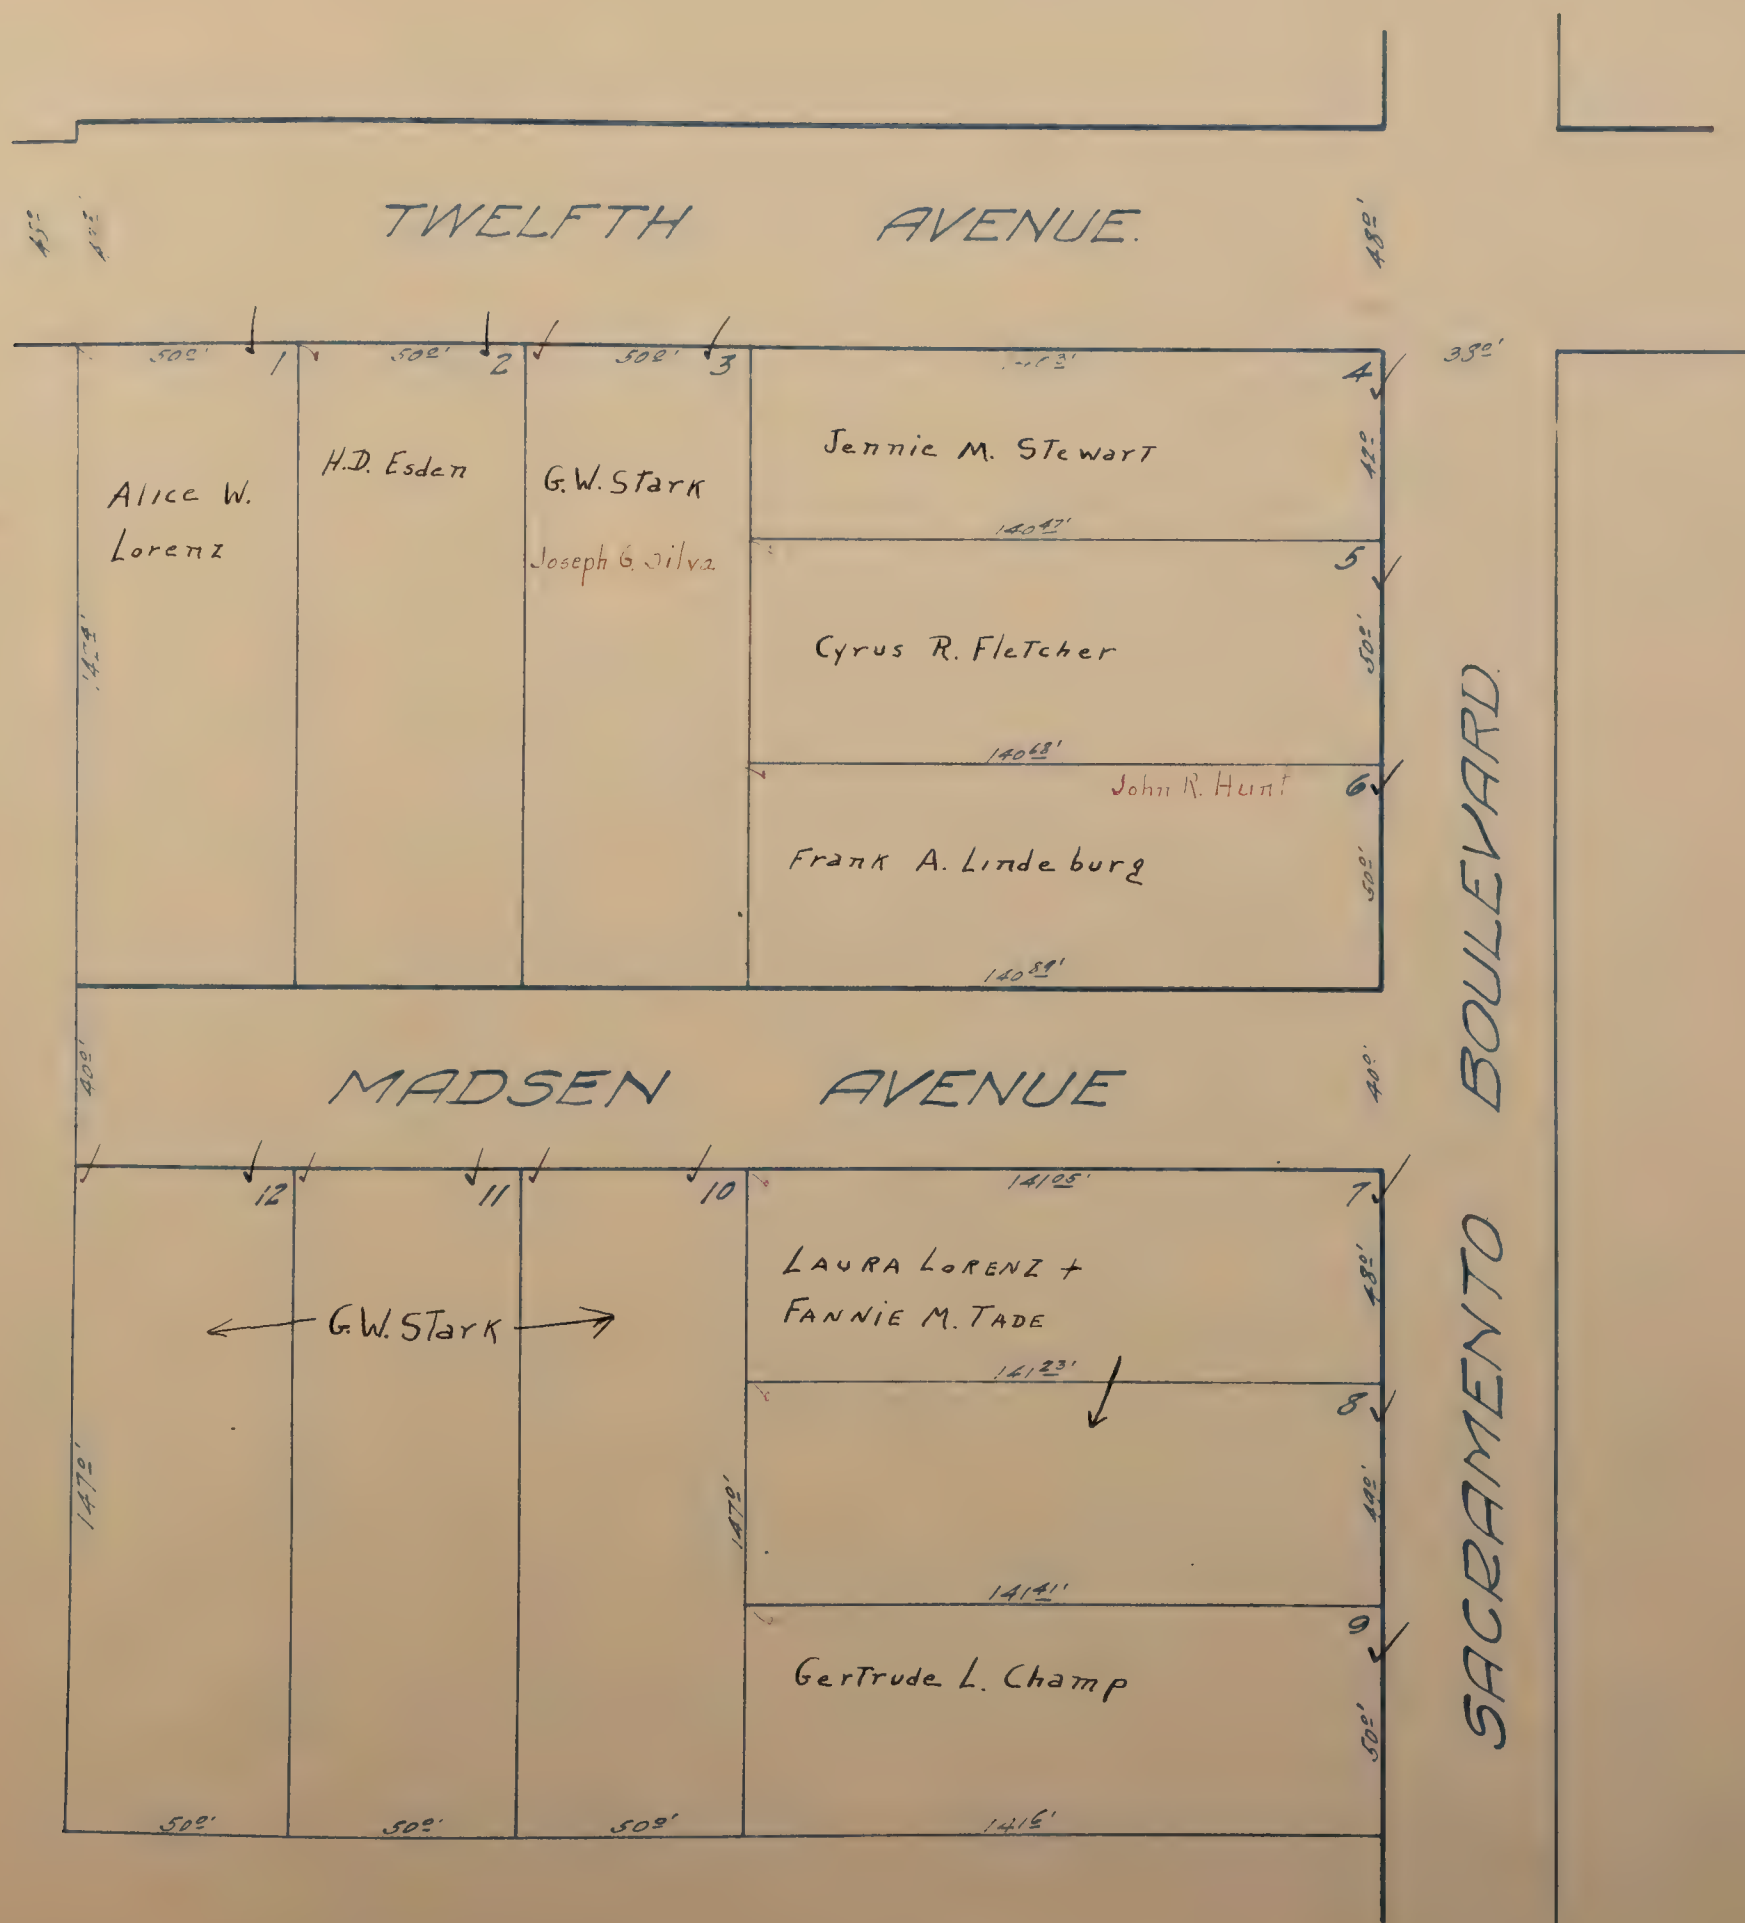 TWELFTH AVENUE.
48º'
50º' 1
50º' 2
50º' 3
4
38º'
Alice W.
Lorenz
H.D. Esden
G.W. Stark
Joseph G. Silva
Jennie M. Stewart
42º
140 47'
5
Cyrus R. Fletcher
50º'
140 68'
John R. Hunt
6
Frank A. Lindeburg
50º'
140 89'
40º'
MADSEN AVENUE
40º'
SACRAMENTO BOULEVARD.
12
11
10
141 05'
7
G.W. Stark
LAURA LORENZ +
FANNIE M. TADE
48º'
141 23'
8
147º'
147º'
49º'
141 41'
9
Gertrude L. Champ
50º'
50º'
50º'
50º'
141 6'